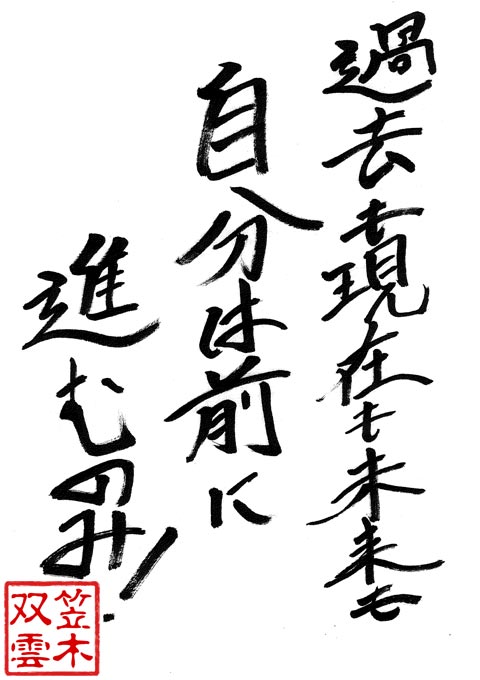 過去も現在も未来も
自分は前に
進むのみ!
笠木
双雲